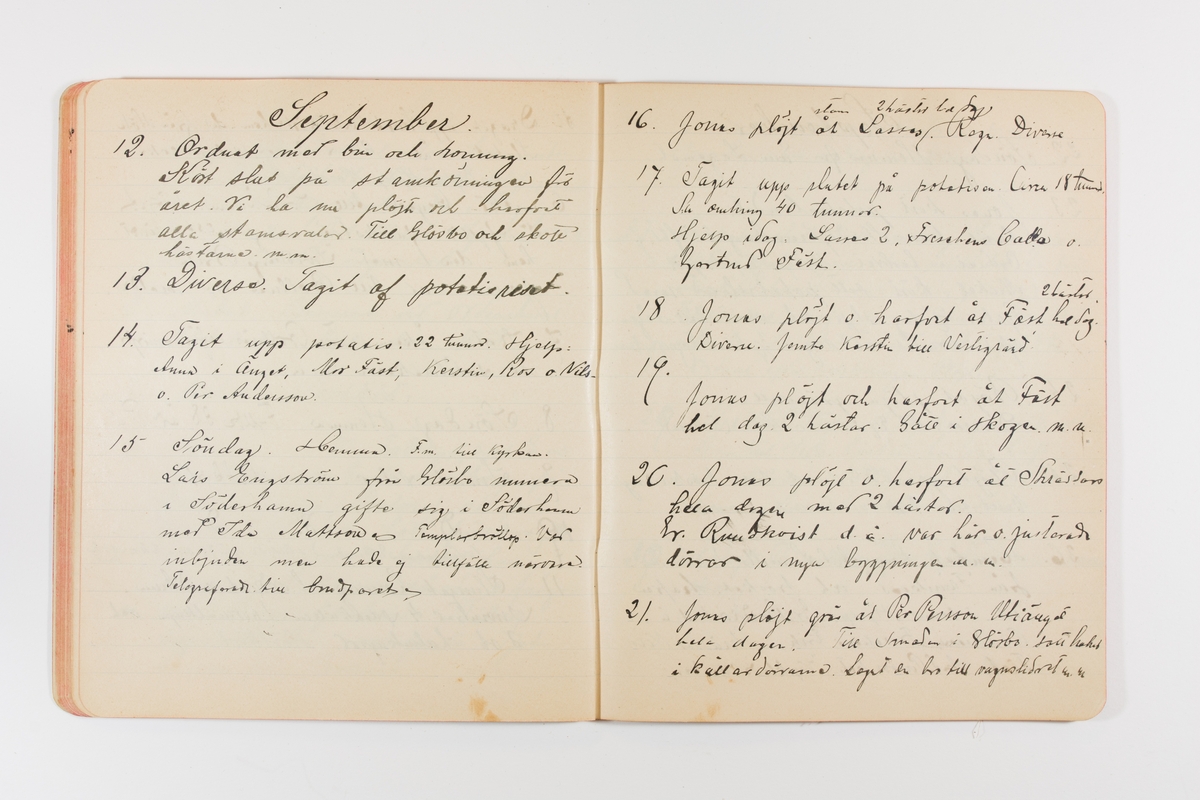 September.
12. Ordnat med bin och honung.
Kört slut på stamkörningen för
året. Vi ha nu plöjt och harfvat
alla stamvalar. Till Glösbo och skott
hästarna. m.m.
13. Diverse. Tagit af potatisreset.
14. Tagit upp potatis. 22 tunnor. Hjelp:
Anna i Änget, Mor Fäst, Kerstin, Ros o Nils-
o. Per Andersson.
15 Söndag. Hemma. F.m. till kyrkan.
Lars Engström från Glösbo numera
i Söderhamn gifte sig i Söderhamn
med Ida Mattsson Templarbröllop. Var
inbjuden men hade ej tillfälle närvara.
Telegraferade till brudparet
stam 2 hästar hel dag
16. Jonas plöjt åt Lasses. Regn. Diverse
17. Tagit upp slutet på potatisen. Circa 18 tunn.
40 tunnor.
Hjelp idag. Lasses 2, o.
Fäst.
2 hästar.
18 Jonas plöjt o. harfvat åt Fäst hel dag.
Diverse. Jemte Kerstin till
19.
Jonas plöjt och harfvat åt Fäst
hel dag. 2 hästar. Gått i skogen m.m.
20. Jonas plöjt o. harfvat åt Skräddars
hela dagen med 2 hästar.
Er. Rundkvist d. ä. var här o. justerade
dörrar i nya byggningen m. m.
21. Jonas plöjt åt Per Persson Utiänget
hela dagen. Till Smeden i Glösbo. Satt
i källardörrarna. Lagat en bro till vagnslidret m. m